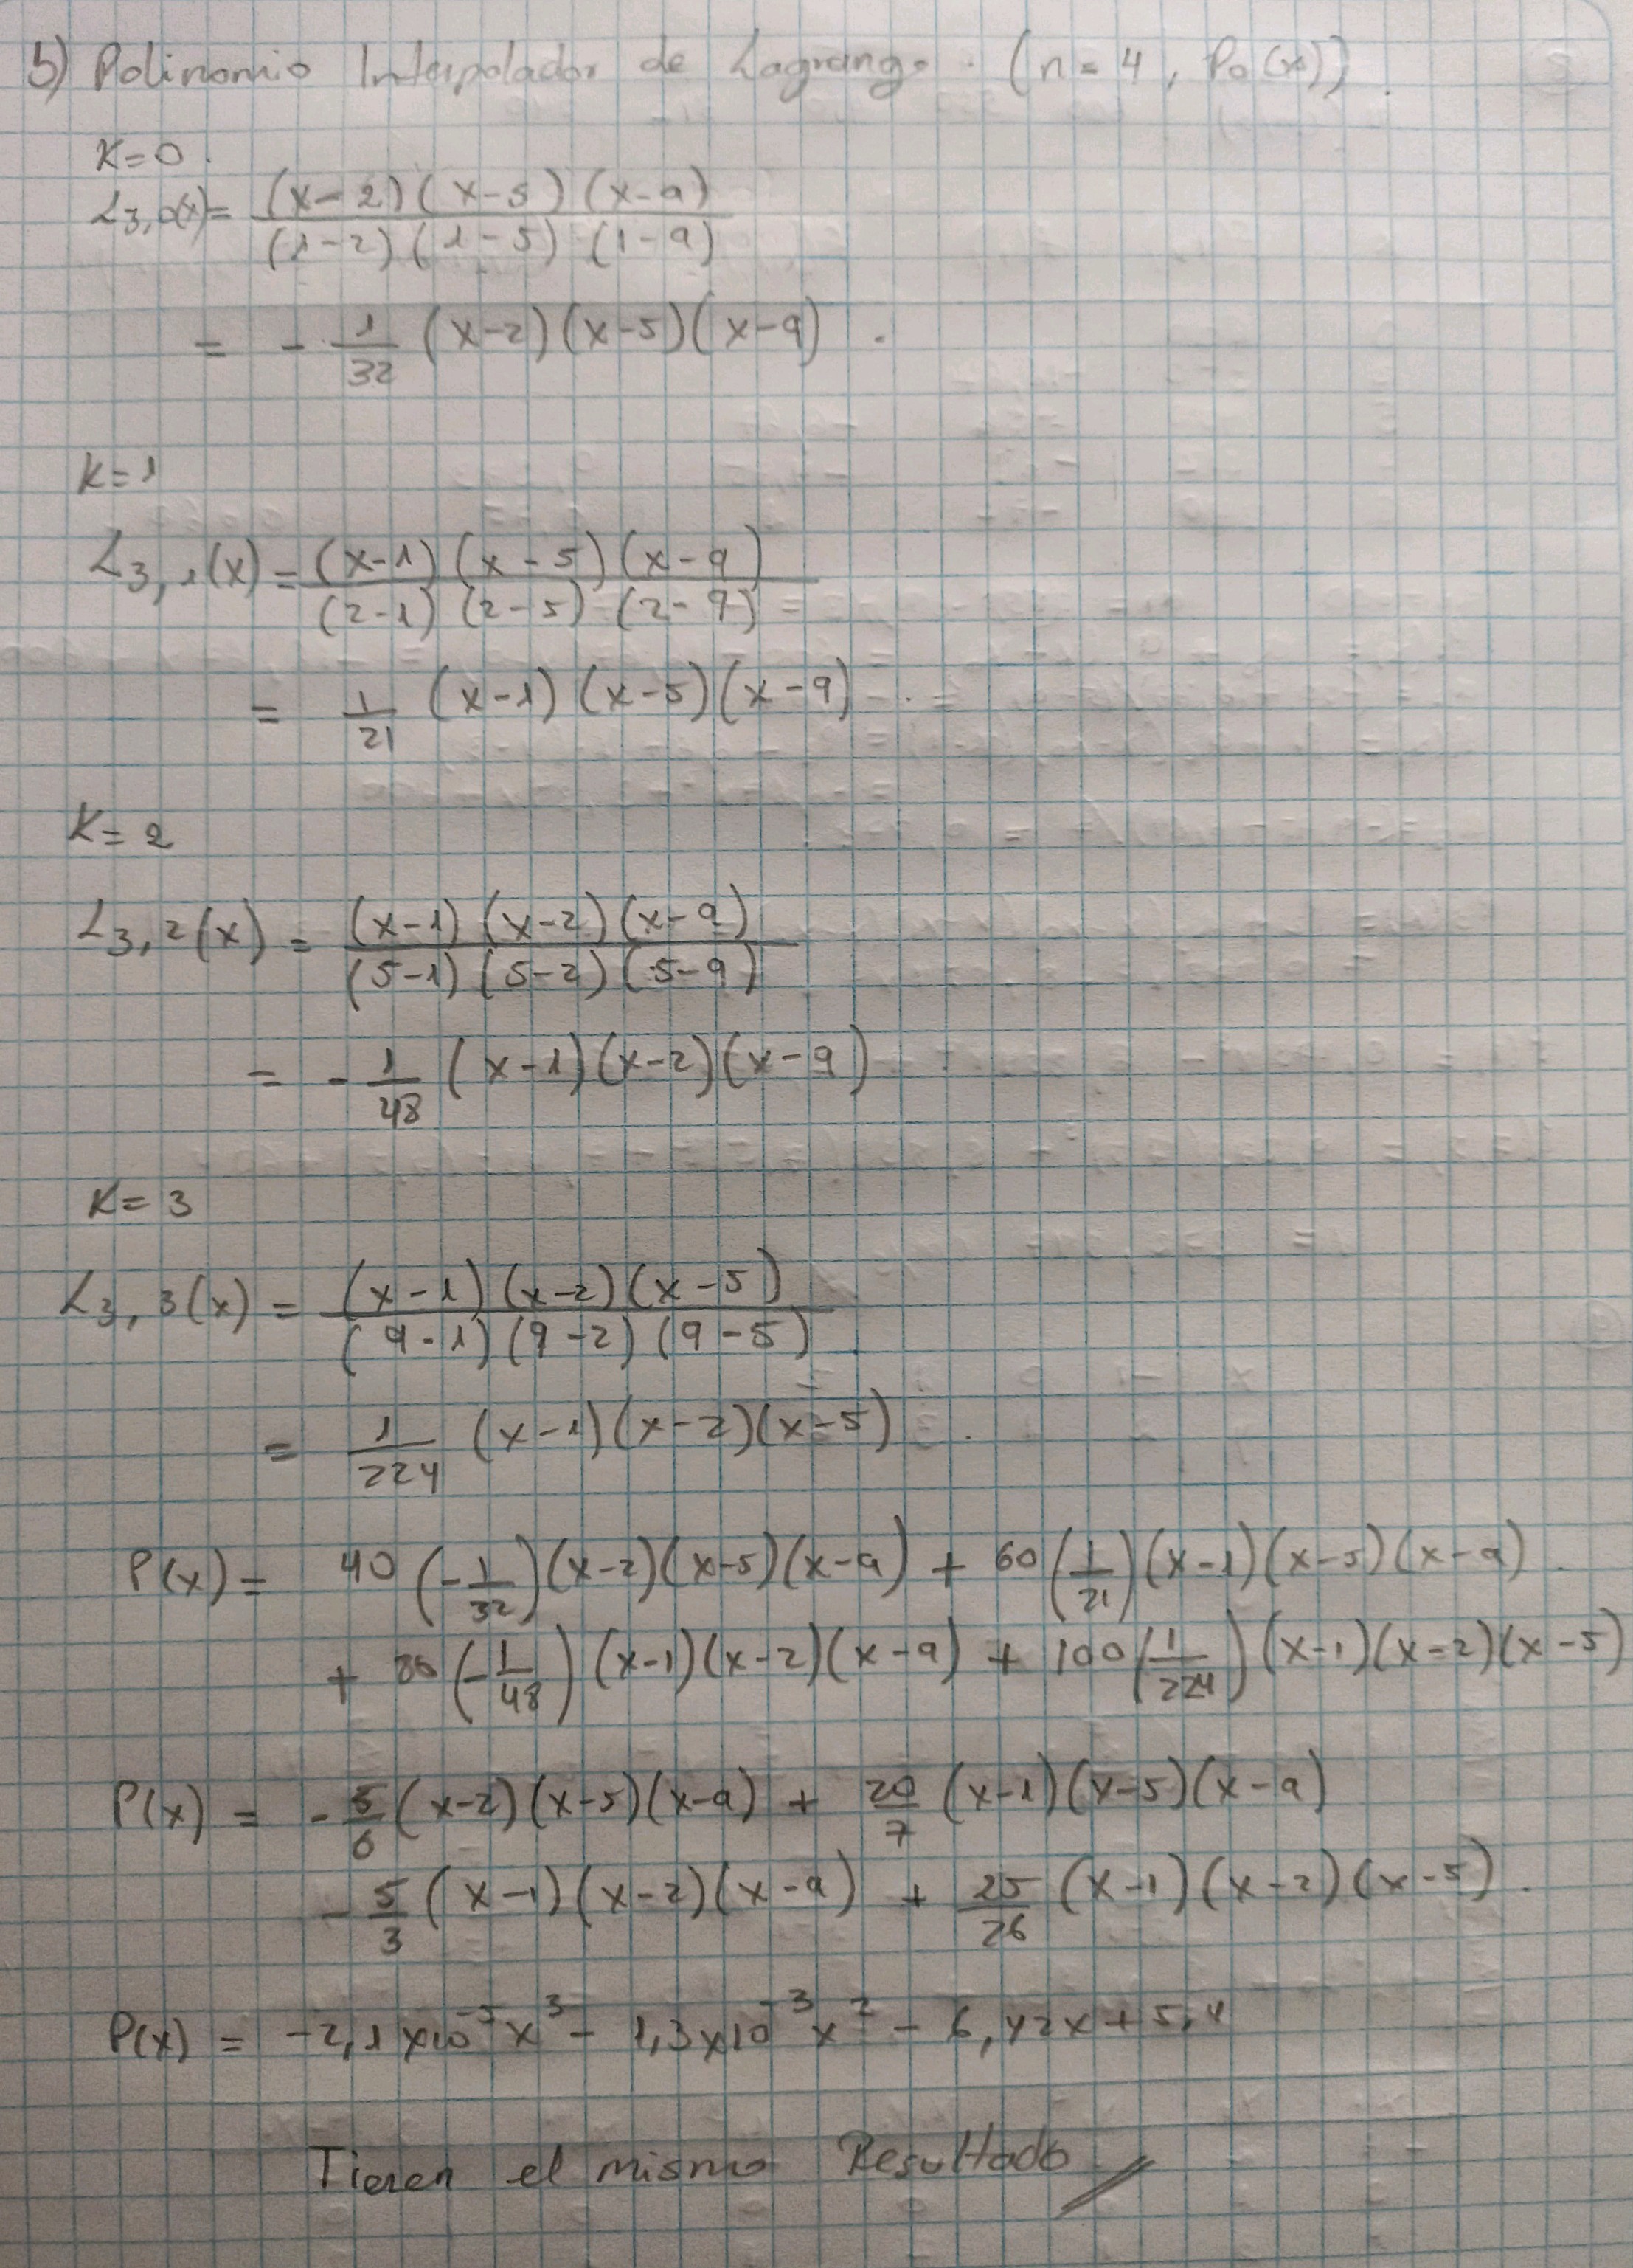 b) Polinomio Interpolador de Lagrange. (n = 4, P₀(x)).
K=0.
L₃,₀(x) = (x-2)(x-5)(x-9) / (1-2)(1-5)(1-9)
= - 1/32 (x-2)(x-5)(x-9).
K=1
L₃,₁(x) = (x-1)(x-5)(x-9) / (2-1)(2-5)(2-9)
= 1/21 (x-1)(x-5)(x-9).
K=2
L₃,₂(x) = (x-1)(x-2)(x-9) / (5-1)(5-2)(5-9)
= - 1/48 (x-1)(x-2)(x-9)
K=3
L₃,₃(x) = (x-1)(x-2)(x-5) / (9-1)(9-2)(9-5).
= 1/224 (x-1)(x-2)(x-5).
P(x) = 40 (-1/32)(x-2)(x-5)(x-9) + 60 (1/21)(x-1)(x-5)(x-9).
+ (-1/48)(x-1)(x-2)(x-9) + 100 (1/224)(x-1)(x-2)(x-5)
P(x) = - 5/6 (x-2)(x-5)(x-9) + 20/7 (x-1)(x-5)(x-9)
- 5/3 (x-1)(x-2)(x-9) + 25/26 (x-1)(x-2)(x-5).
P(x) = -2,1x10⁻⁵x³ - 1,3x10⁻³x² - 6,42x + 5,4
Tienen el mismo Resultado //